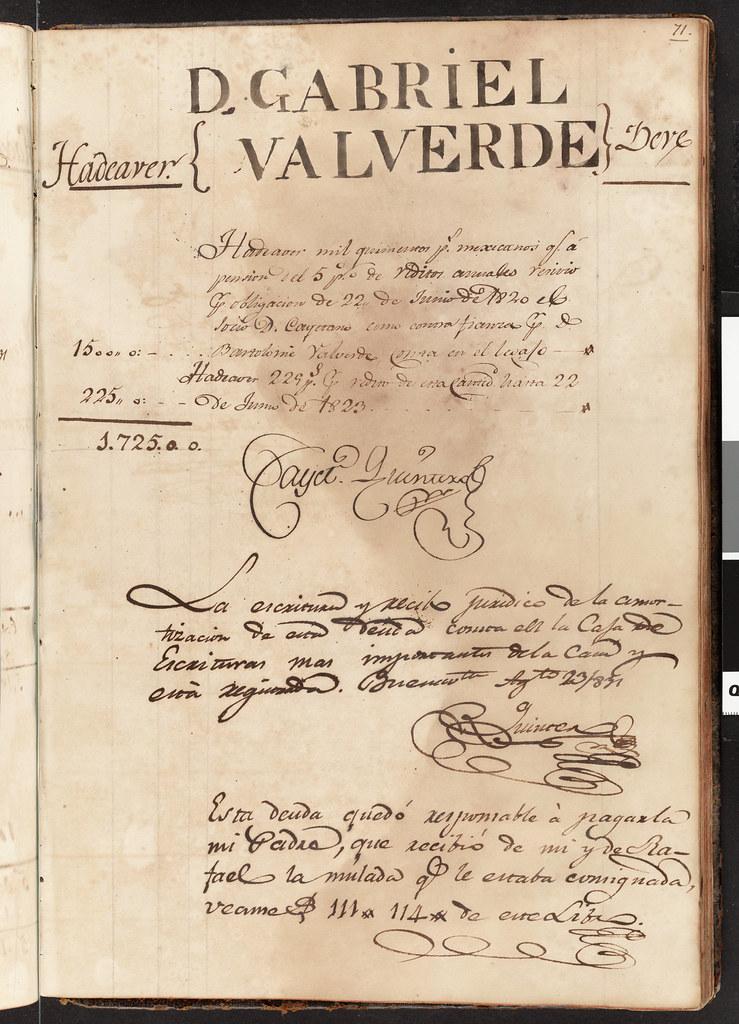 71.
D. GABRIEL
Hadeaver. { VALVERDE } Deve
Hadeaver mil quinientos p.s mexicanos q.e á
pension del 5 p.r% de réditos anuales recivio
p.r obligacion de 22 de Junio de 1820 el
Socio D. Cayetano como consta fianza p.r D.
1500 ,, 0: - . . . Bartolomé Valverde consta en el legajo
Hadeaver 225 p.s p.r redito de esta cantid. hasta 22
225,, 0: - - De Junio de 1823 . . .
1.725. 0 0.
Cayet.o Quintero
La escritura y recibo juridico de la amor-
tizacion de esta deuda consta en la Casa de
Escrituras mas importantes de la Casa y
está registrada. Ag.to 23/851
Quintero
Esta deuda quedó responsable à pagarla
mi Padre, que recibió de mi y de Ra-
fael la mulada q.e le estaba consignada,
veanse 111 114 de este Libro.